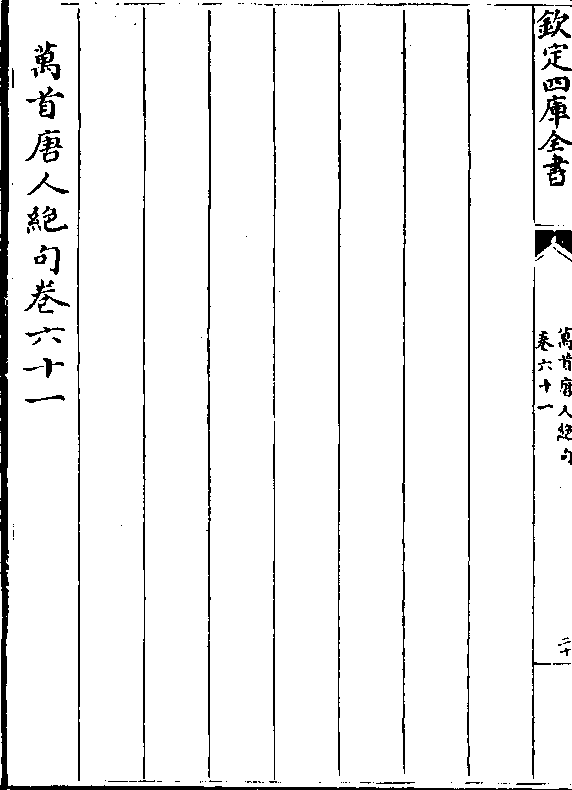 欽定四庫全書
萬首唐人絶句
卷六十一
二十
萬首唐人絶句卷六十一